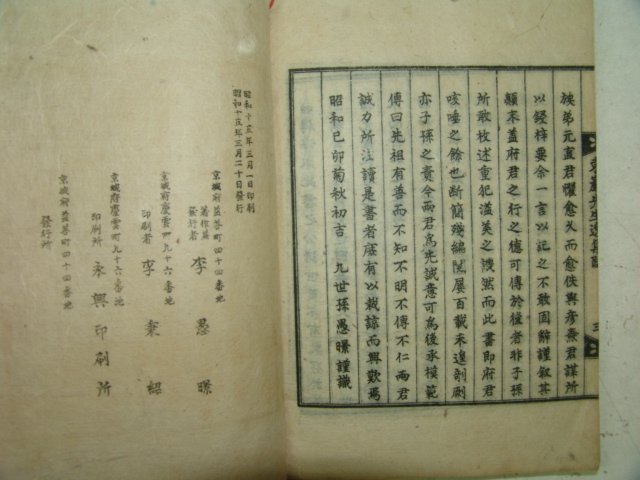 族弟元直君懼愈久而愈佚與彦熹君謀所
以鋟梓要余一言以記之不敢固辭謹叙其
顛末盖府君之行之德可傳於後者非子孫
所敢枚述重犯溢美之謏然而此書即府君
咳唾之餘也断簡殘編閱屢百載未遑剞劂
亦子孫之責今兩君爲先誠意可爲後承模範
傳曰先祖有善而不知不明不傳不仁兩君
誠力所注讀是書者庶有以裁諒而興歎焉
昭和己卯菊秋初吉 九世孫愚暻謹識
昭和十五年三月一日印刷
昭和十五年三月二十日發行
京城府益善町四十四番地
著作兼
發行者 李愚暻
京城府慶雲町九十六番地
印刷者 李秉紹
京城府慶雲町九十六番地
印刷所 永興印刷所
京城府益善町四十四番地
發行所